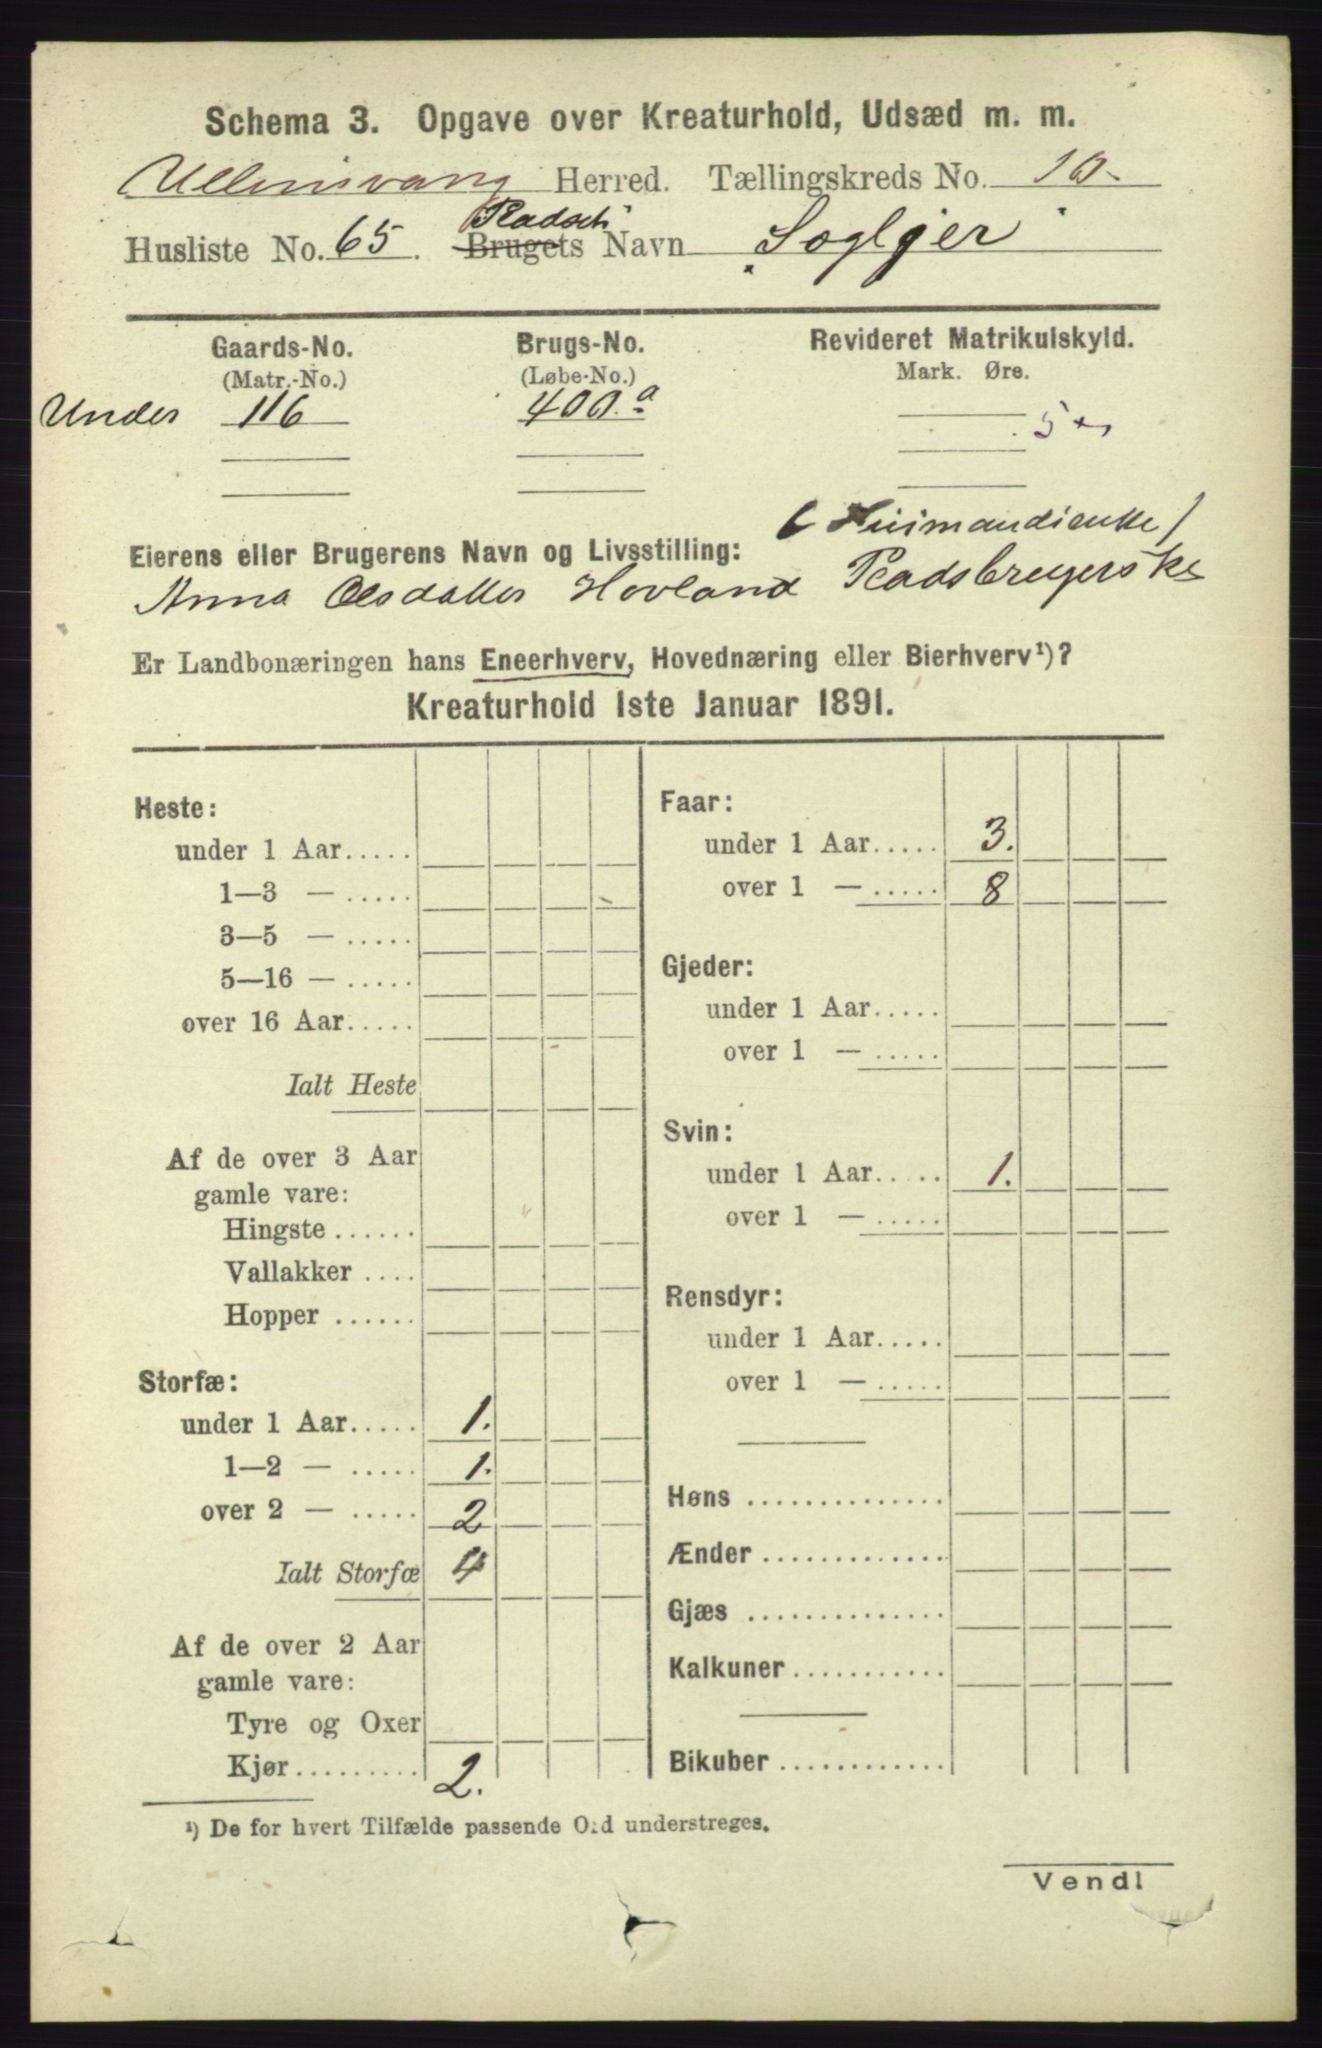 Schema 3. Opgave over Kreaturhold, Udsæd m. m.
Ullensvang Herred. Tællingskreds No. 10.
Husliste No. 65. Pladsens Brugets Navn Sogljer
Gaards-No. Brugs-No. Revideret Matrikulskyld.
(Matr.-No.) (Løbe-No.) Mark. Øre.
Under 116 400.a
5
(Husmandsenke)
Eierens eller Brugerens Navn og Livsstilling:
Anna Olsdatter Hovland Pladsbrugerske
Er Landbonæringen hans Eneerhverv, Hovednæring eller Bierhverv¹)?
Kreaturhold 1ste Januar 1891.
Heste:
under 1 Aar.....
1—3 — .....
3—5 — .....
5—16 — .....
over 16 Aar.....
Ialt Heste
Af de over 3 Aar
gamle vare:
Hingste ......
Vallakker ....
Hopper ......
Storfæ:
under 1 Aar..... 1.
1—2 — ..... 1.
over 2 — ..... 2
Ialt Storfæ 4
Af de over 2 Aar
gamle vare:
Tyre og Oxer
Kjør......... 2.
Faar:
under 1 Aar..... 3.
over 1 — ..... 8
Gjeder:
under 1 Aar.....
over 1 — .....
Svin:
under 1 Aar..... 1.
over 1 — .....
Rensdyr:
under 1 Aar.....
over 1 — .....
Høns ..............
Ænder .............
Gjæs ..............
Kalkuner...........
Bikuber ............
¹) De for hvert Tilfælde passende Ord understreges.
Vend!